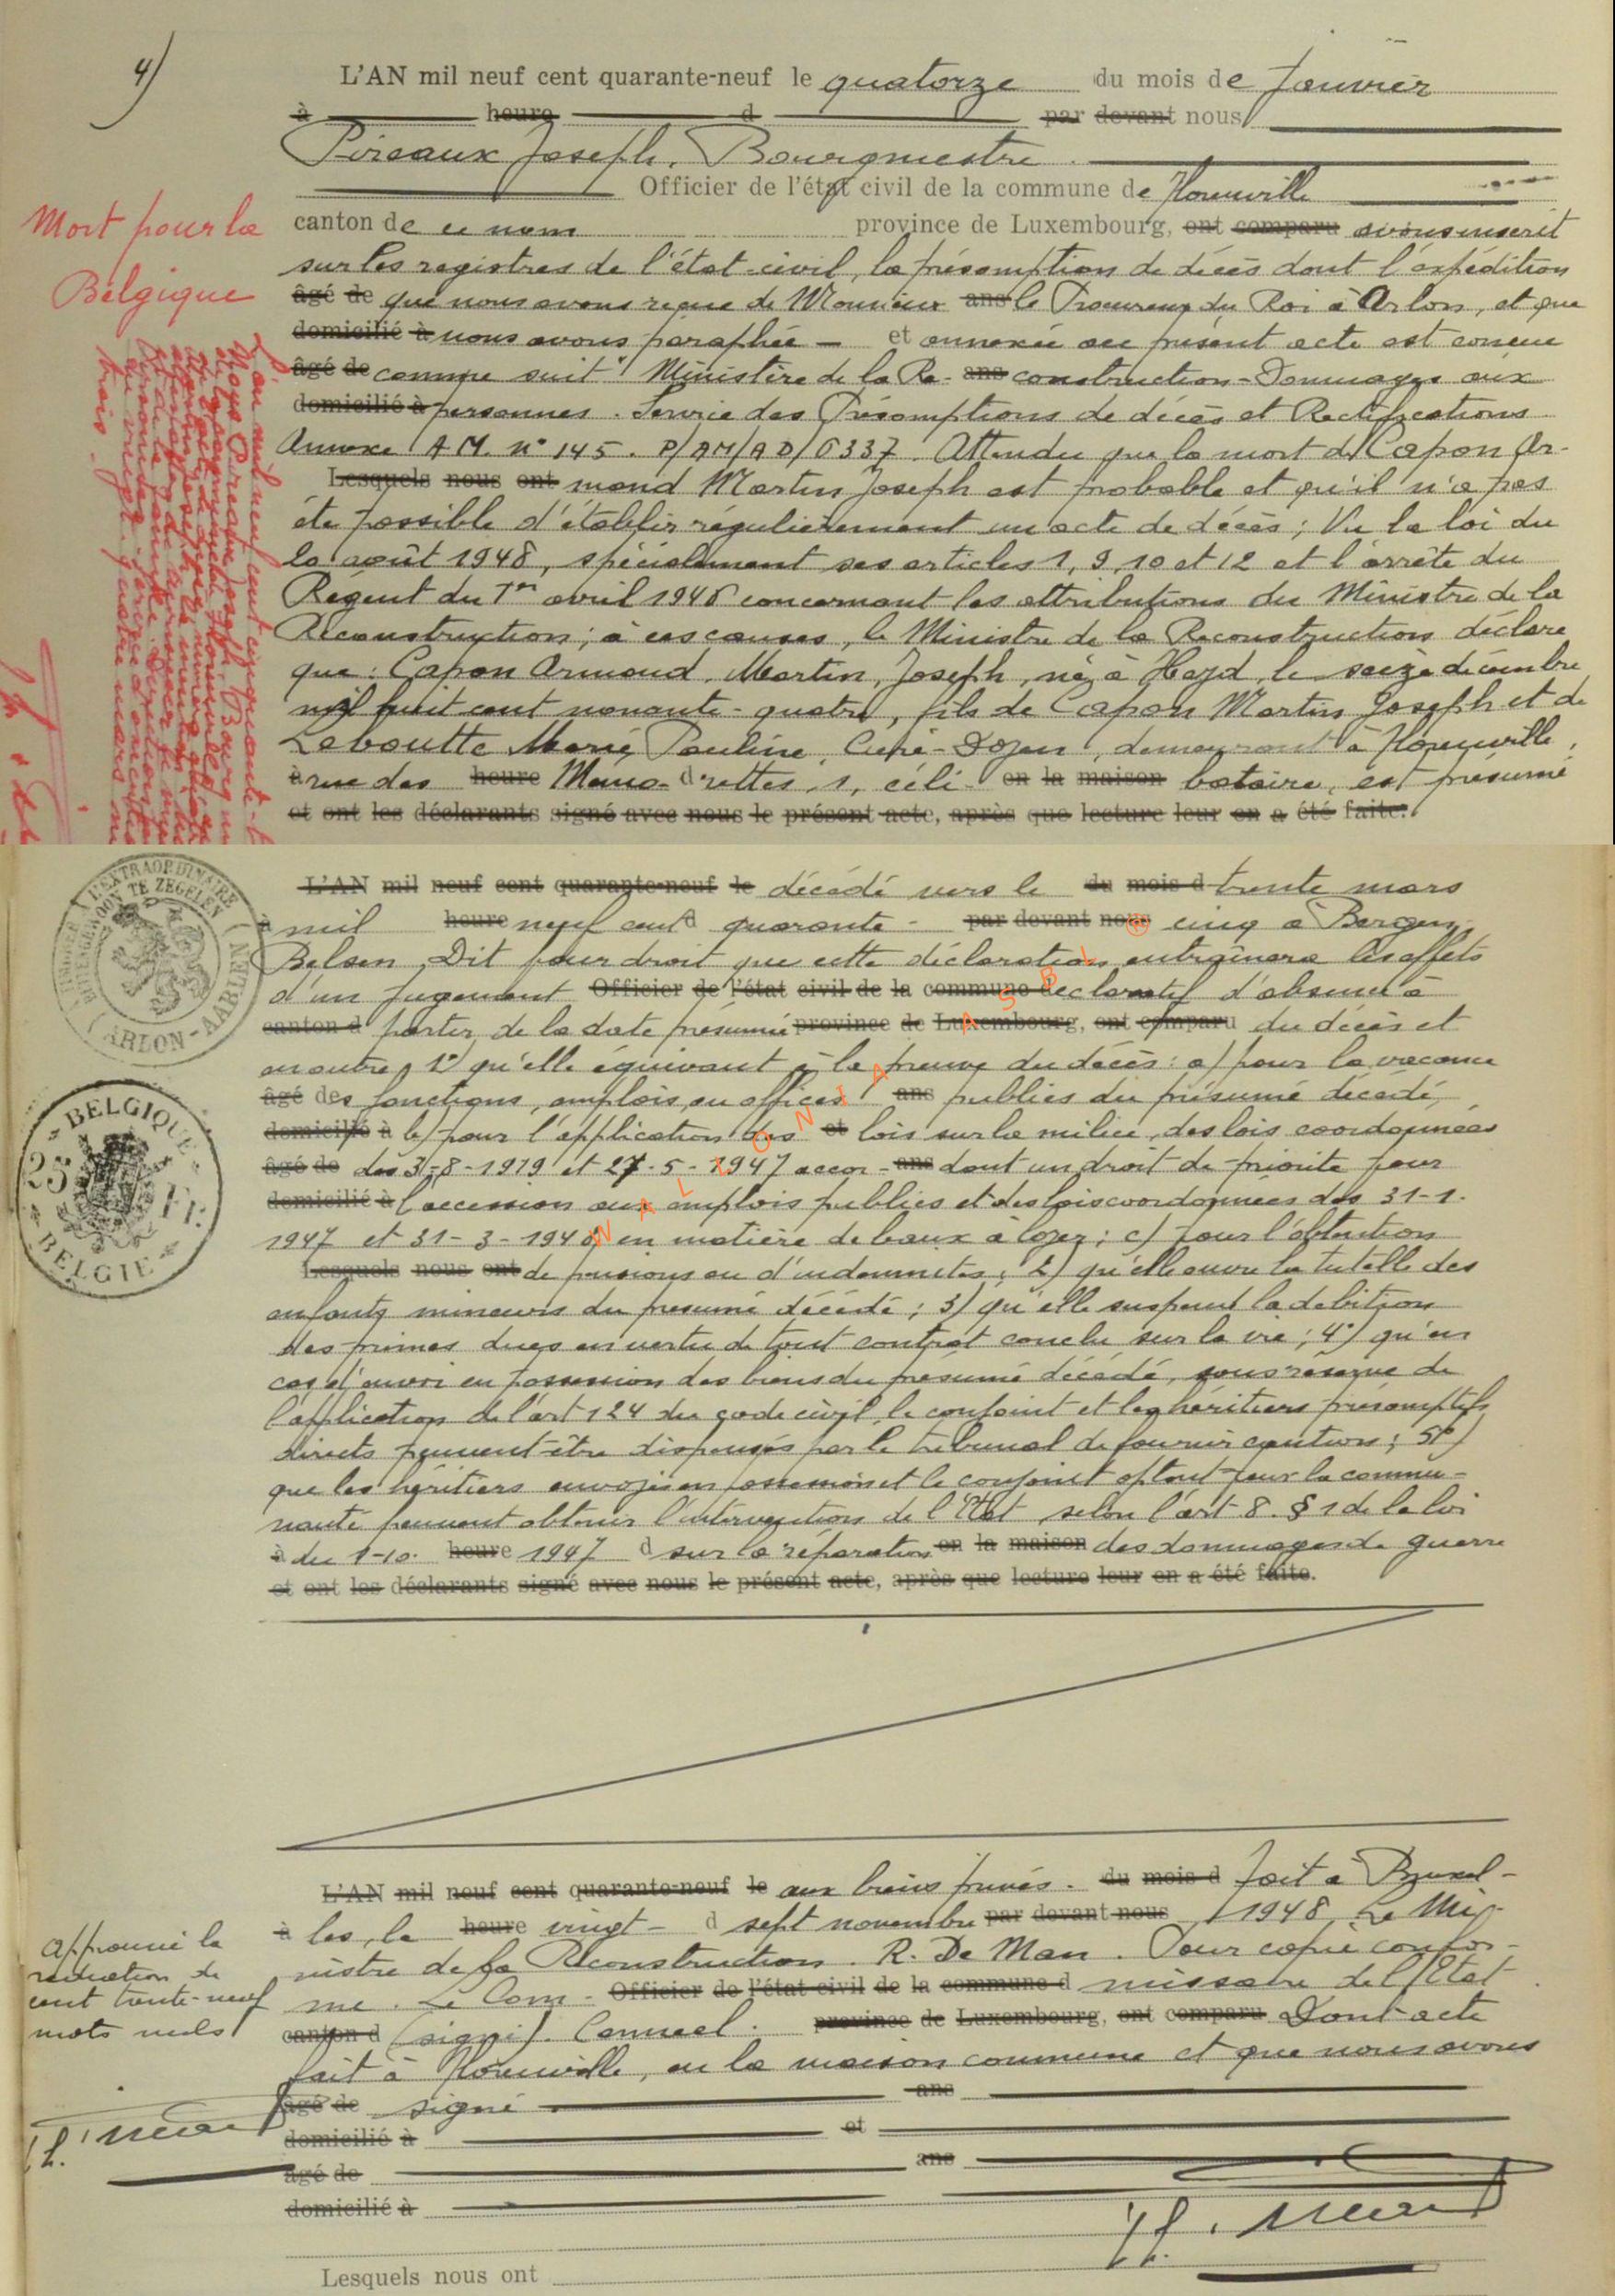 4)
L'AN mil neuf cent quarante-neuf le quatorze du mois de Janvier
à heure d par devant nous
Pireaux Joseph, Bourgmestre
Officier de l'état civil de la commune de Houuville
canton de ce nom province de Luxembourg, ont comparu avons inscrit
sur les registres de l'état-civil, la présomption de décès dont l'expédition
âgé de que nous avons reçue de Monsieur ans le Procureur du Roi à Arlon, et que
domicilié à nous avons paraphée et annexée au présent acte est conçue
âgé de comme suit " Ministère de la Re- ans construction - Dommages aux
domicilié à personnes. Service des Présomptions de décès et Rectifications
Annexe A M. n° 145. P/AM/AD/6337. Attendu que la mort d Capon Ar-
Lesquels nous ont mand Martin Joseph est probable et qu'il n'a pas
été possible d'établir régulièrement un acte de décès ; Vu la loi du
20 août 1948, spécialement ses articles 1, 9, 10 et 12 et l'arrêté du
Régent du 1er avril 1948 concernant les attributions du Ministre de la
Reconstruction ; à ces causes, le Ministre de la Reconstruction déclare
que : Capon Armand, Martin, Joseph, né à Heyd, le seize décembre
mil huit cent nonante-quatre, fils de Capon Martin Joseph et de
Leboutte Marie, Pauline, Curé-Doyen, demeurant à Houuville,
à rue des heure Mana- d rettes, 1, céli- en la maison bataire, est présumé
et ont les déclarants signé avec nous le présent acte, après que lecture leur en a été faite.
Mort pour la
Belgique
L'an mil neuf cent cinquante
L'AN mil neuf cent quarante-neuf le décédé vers le du mois d trente mars
à mil heure neuf cent d quarante- par devant nous cinq à Bergen
Belsen. Dit pour droit que cette déclaration entraînera les effets
d'un jugement Officier de l'état civil de la commune déclaratif d'absence à
canton d partir de la date présumée province de Luxembourg, ont comparu du décès et
en outre, 1°) qu'elle équivaut à la preuve du décès : a) pour la vacance
âgé des fonctions, emplois, ou offices ans publics du présumé décédé,
domicilié à b) pour l'application des et lois sur la milice, des lois coordonnées
âgé de des 3-8-1919 et 27-5-1947 accor- ans dant un droit de priorité pour
domicilié à l'accession aux emplois publics et des lois coordonnées des 31-1-
1947 et 31-3-1948 en matière de baux à loyer ; c) pour l'obtention
Lesquels nous ont de pensions ou d'indemnités ; 2) qu'elle ouvre la tutelle des
enfants mineurs du présumé décédé ; 3) qu'elle suspend la débition
des primes dues en vertu de tout contrat conclu sur la vie ; 4°) qu'en
cas d'envoi en possession des biens du présumé décédé, sous réserve de
l'application de l'art 124 du code civil, le conjoint et les héritiers présomptifs
directs peuvent être dispensés par le tribunal de fournir caution ; 5°)
que les héritiers envoyés en possession et le conjoint optant pour la commu-
nauté peuvent obtenir l'intervention de l'Etat selon l'art 8. § 1 de la loi
à du 1-10- heure 1947 d sur la réparation en la maison des dommages de guerre
et ont les déclarants signé avec nous le présent acte, après que lecture leur en a été faite.
L'EXTRAORDINAIRE
BUITENGEWOON TE ZEGELEN
ARLON-AARLEN
BELGIQUE
25 Fr.
BELGIE
WALLONIA ASBL ®
L'AN mil neuf cent quarante-neuf le aux biens privés. du mois d Fait à Bruxel-
à les, le heure vingt- d sept novembre par devant nous 1948 Le Mi-
nistre de la Reconstruction. R. De Man. Pour copie confor-
me. Le Com- Officier de l'état civil de la commune d missaire de l'Etat
canton d (signé). Canneel. province de Luxembourg, ont comparu Dont acte
fait à Houuville, en la maison commune et que nous avons
âgé de signé ans
domicilié à et
âgé de ans
domicilié à
Lesquels nous ont
Approuvé la
radiation de
cent trente-neuf
mots nuls